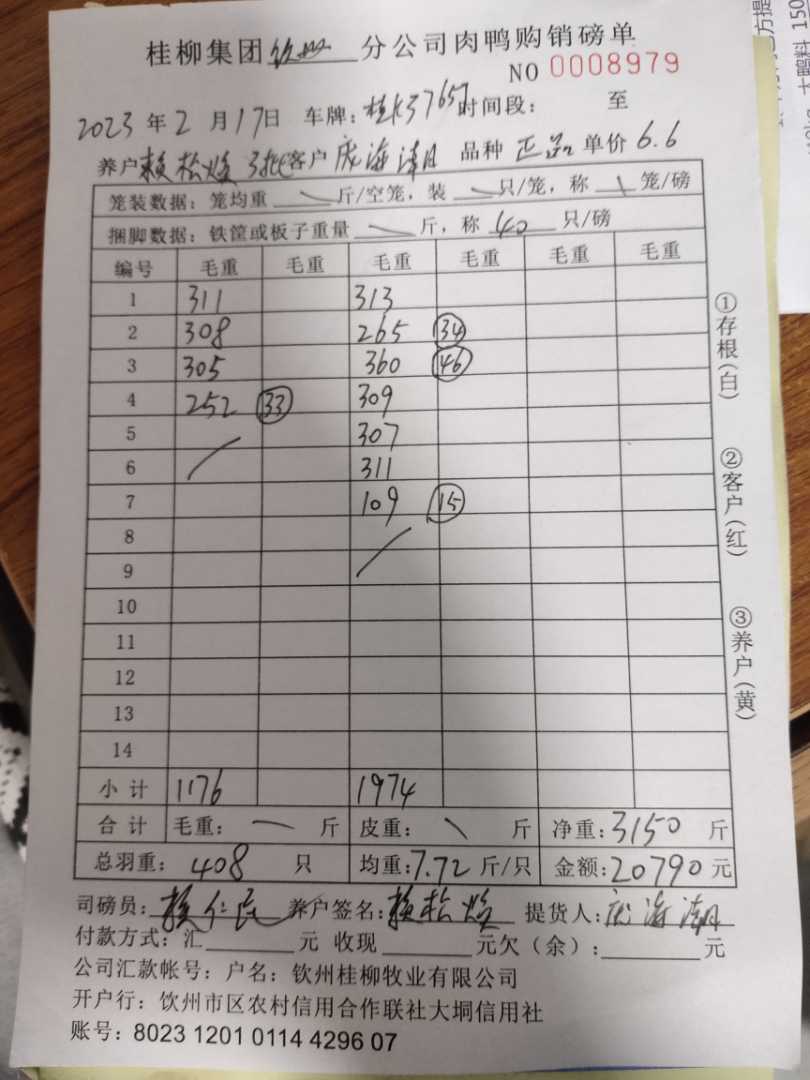 桂柳集团钦州分公司肉鸭购销磅单
NO 0008979
2023年2月17日 车牌：桂K37657 时间段： 至
养户赖松焕 3批客户庞海 品种 正品 单价 6.6
笼装数据：笼均重 斤/空笼，装 只/笼，称 笼/磅
捆脚数据：铁筐或板子重量 斤，称 40 只/磅
编号 毛重 毛重 毛重 毛重 毛重 毛重
1 311 313
2 308 265 34
3 305 360 46
4 252 33 309
5 307
6 311
7 109 15
8
9
10
11
12
13
14
小计 1176 1974
合计 毛重： 斤 皮重： 斤 净重：3150 斤
总羽重： 408 只 均重：7.72 斤/只 金额：20790元
司磅员： 养户签名：赖松焕 提货人：庞海
付款方式：汇 元 收现 元欠（余）： 元
公司汇款帐号：户名：钦州桂柳牧业有限公司
开户行：饮州市区农村信用合作联社大垌信用社
账号：8023 1201 0114 4296 07
①存根（白）
②客户（红）
③养户（黄）